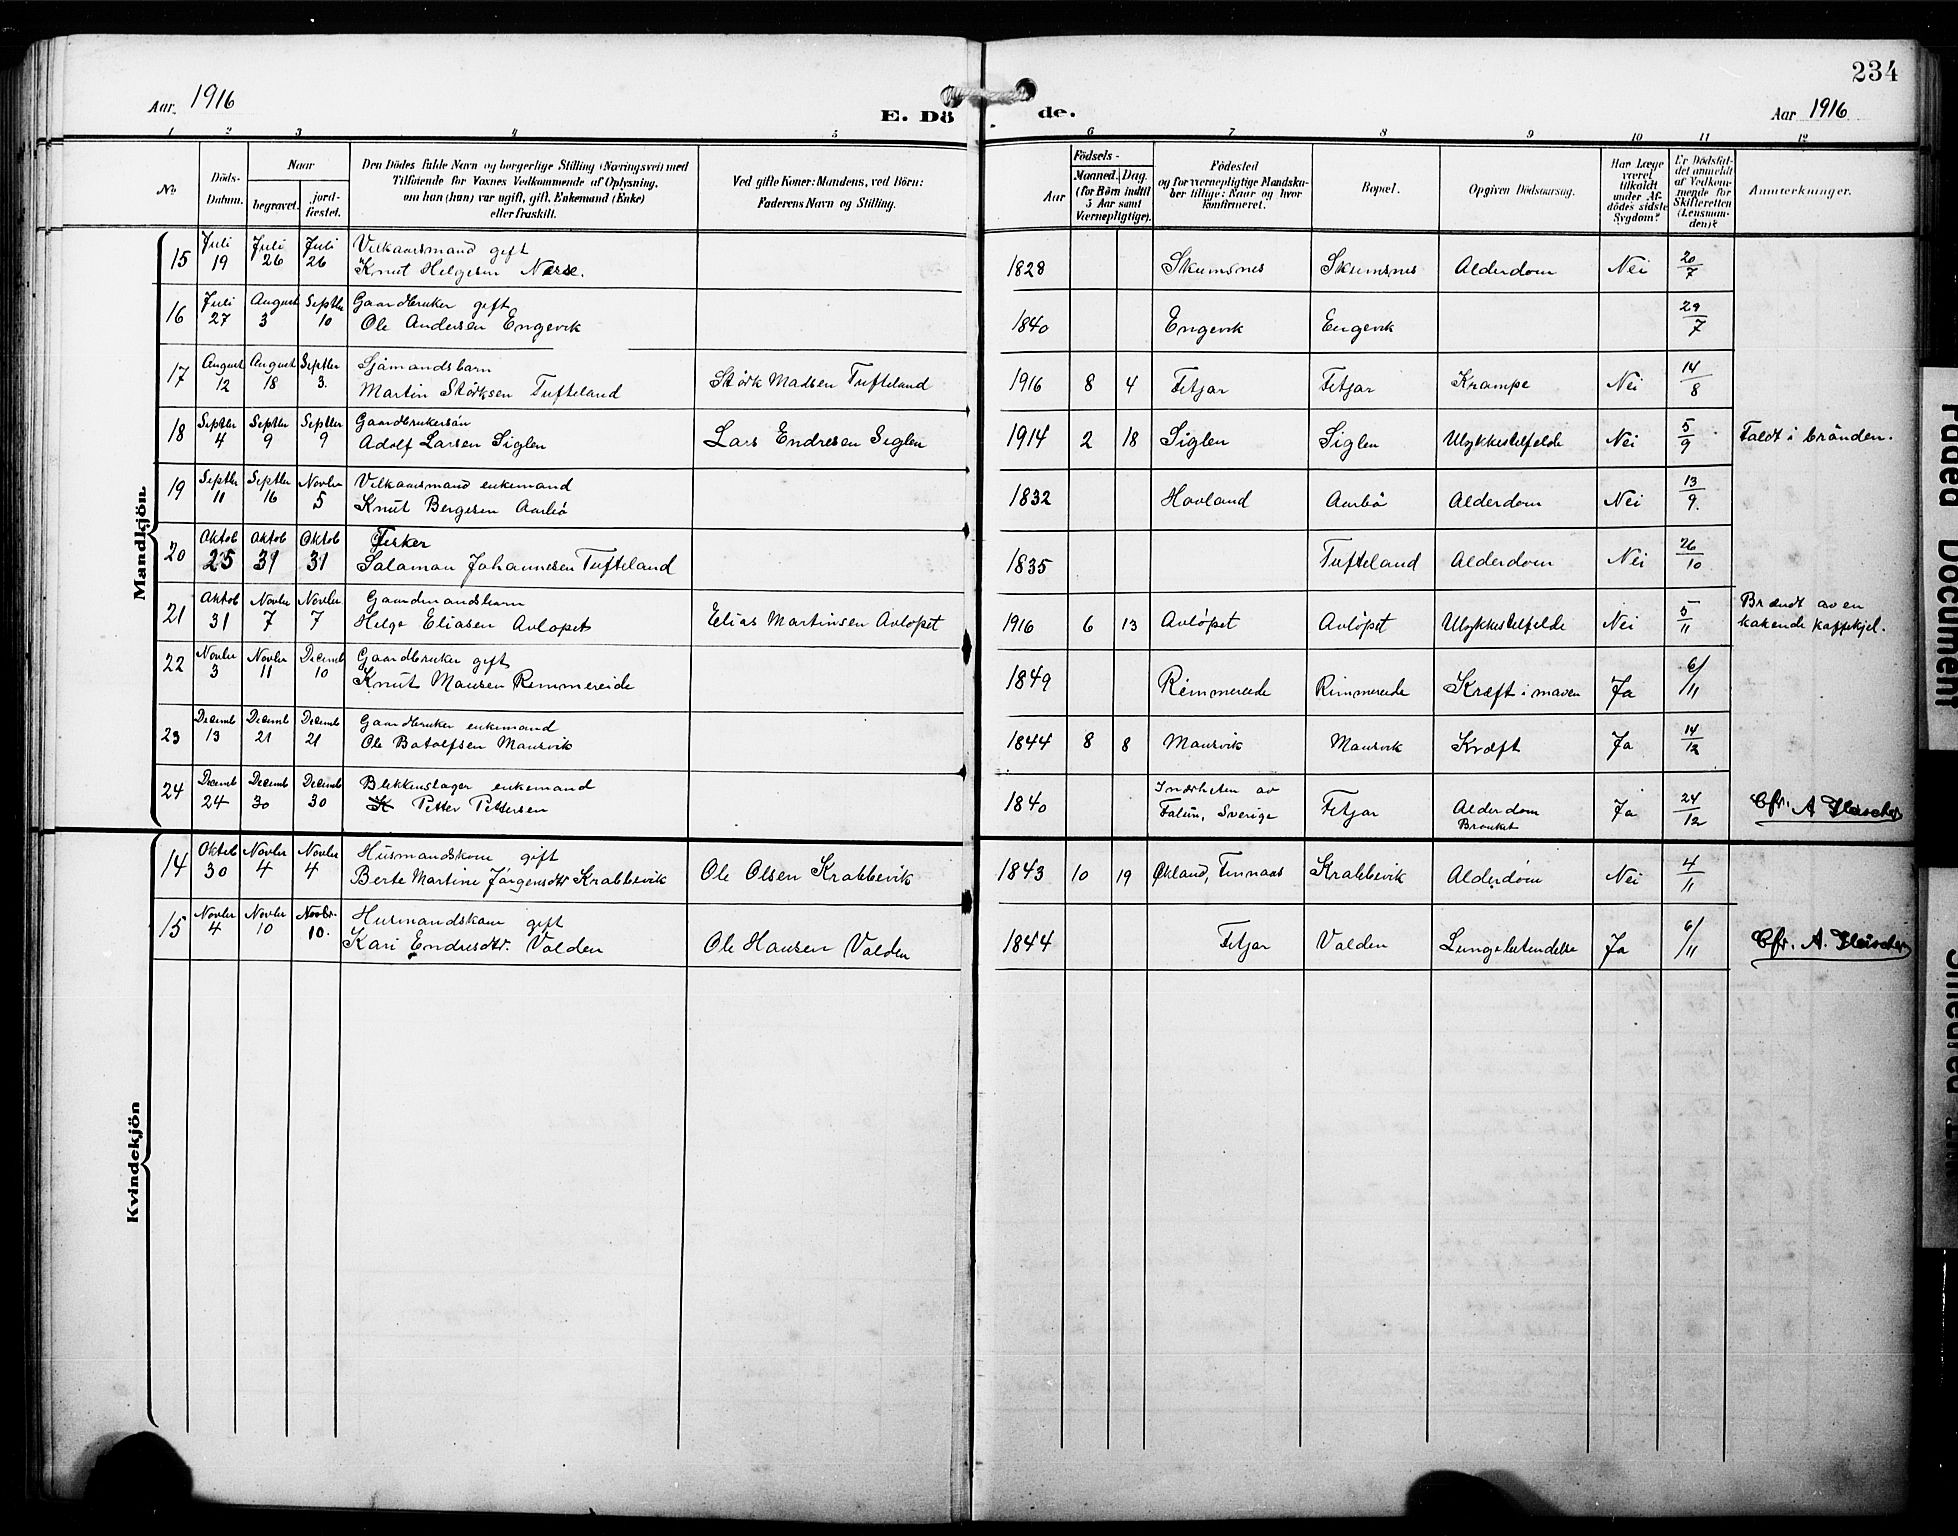 234
Aar. 1916
E. Dö de.
Aar 1916
1 2 3 4 5 6 7 8 9 10 11 12
No
Döds-Datum.
Naar
begravet.
jordfæstet.
Den Dödes fulde Navn og borgerlige Stilling (Næringsvei) med
Tilföiende for Voxnes Vedkommende af Oplysning,
om han (hun) var ugift, gift, Enkemand (Enke)
eller fraskilt.
Ved gifte Koner: Mandens, ved Börn:
Faderens Navn og Stilling.
Födsels-
Aar
Maaned. Dag.
(for Börn indtil
5 Aar samt
Værnepligtige).
Födested
og for værnepligtige Mandska-
ber tillige: Naar og hvor
konfirmeret.
Bopæl.
Opgiven Dödsaarsag.
Har Læge
været
tilkaldt
under Af-
dödes sidste
Sygdom?
Er Dödsfal-
det anmeldt
af Vedkom-
mende for
Skifteretten
(Lensman-
den)?
Anmærkninger.
Mandkjön.
15 Juli 19 Juli 26 Juli 26 Vilkaarsmand gift
Knut Helgesen 1828 Skumsnes Skumsnes Alderdom Nei 20/7
16 Juli 27 August 3 Septbr 10 Gaardbruker gift
Ole Andersen Engevik 1840 Engevik Engevik 29/7
17 August 12 August 18 Septbr 3. Sjømandsbarn
Martin Størksen Tufteland Størk Madsen Tufteland 1916 8 4 Fitjar Fitjar Krampe Nei 14/8
18 Septbr 4 Septbr 9 Septbr 9 Gaardbrukersøn
Adolf Larsen Siglen Lars Endresen Siglen 1914 2 18 Siglen Siglen Ulykkestilfelde Nei 5/9 Faldt i brønden.
19 Septbr 11 Septbr 16 Novbr 5 Vilkaarsmand enkemand
Knut Bergesen Aarbø 1832 Hovland Aarbø Alderdom Nei 13/9.
20 Oktob 25 Oktob 31 Oktob 31 Fisker
Salamon Johannesen Tufteland 1835 Tufteland Alderdom Nei 26/10
21 Oktob 31 Novbr 7 Novbr 7 Gaardmandsbarn
Helge Eliasen Avløpet Elias Martinsen Avløpet 1916 6 13 Avløpet Avløpet Ulykkestilfelde Nei 5/11 Brændt av en
kokende kaffekjel.
22 Novbr 3 Novbr 11 Decemb 10 Gaardbruker gift
Knut Monsen Rimmereide 1849 Rimmereide Rimmereide Kræft i maven Ja 6/11
23 Decemb 13 Decemb 21 Decemb 21 Gaardbruker enkemand
Ole Botolfsen Mausvik 1844 8 8 Mausvik Mausvik Kræft Ja 14/12
24 Decemb 24 Decemb 30 Decemb 30 Blikkenslager enkemand
Petter Pettersen 1840 I nærheten av
Falun, Sverige Fitjar Alderdom
Bronkit Ja 24/12 Cfr. A Fleischer
Kvindekjön
14 Oktob 30 Novbr 4 Novbr 4 Husmandskone gift
Berte Martine Jørgensdtr Krabbevik Ole Olsen Krabbevik 1843 10 19 Økland, Finnaas Krabbevik Alderdom Nei 4/11
15 Novbr 4 Novbr 10 Novbr. 10. Husmandskone gift
Kari Endresdtr. Valden Ole Hansen Valden 1844 Fitjar Valden Lungebetendelse Ja 6/11 Cfr. A. Fleischer
Faded Document
Smeared